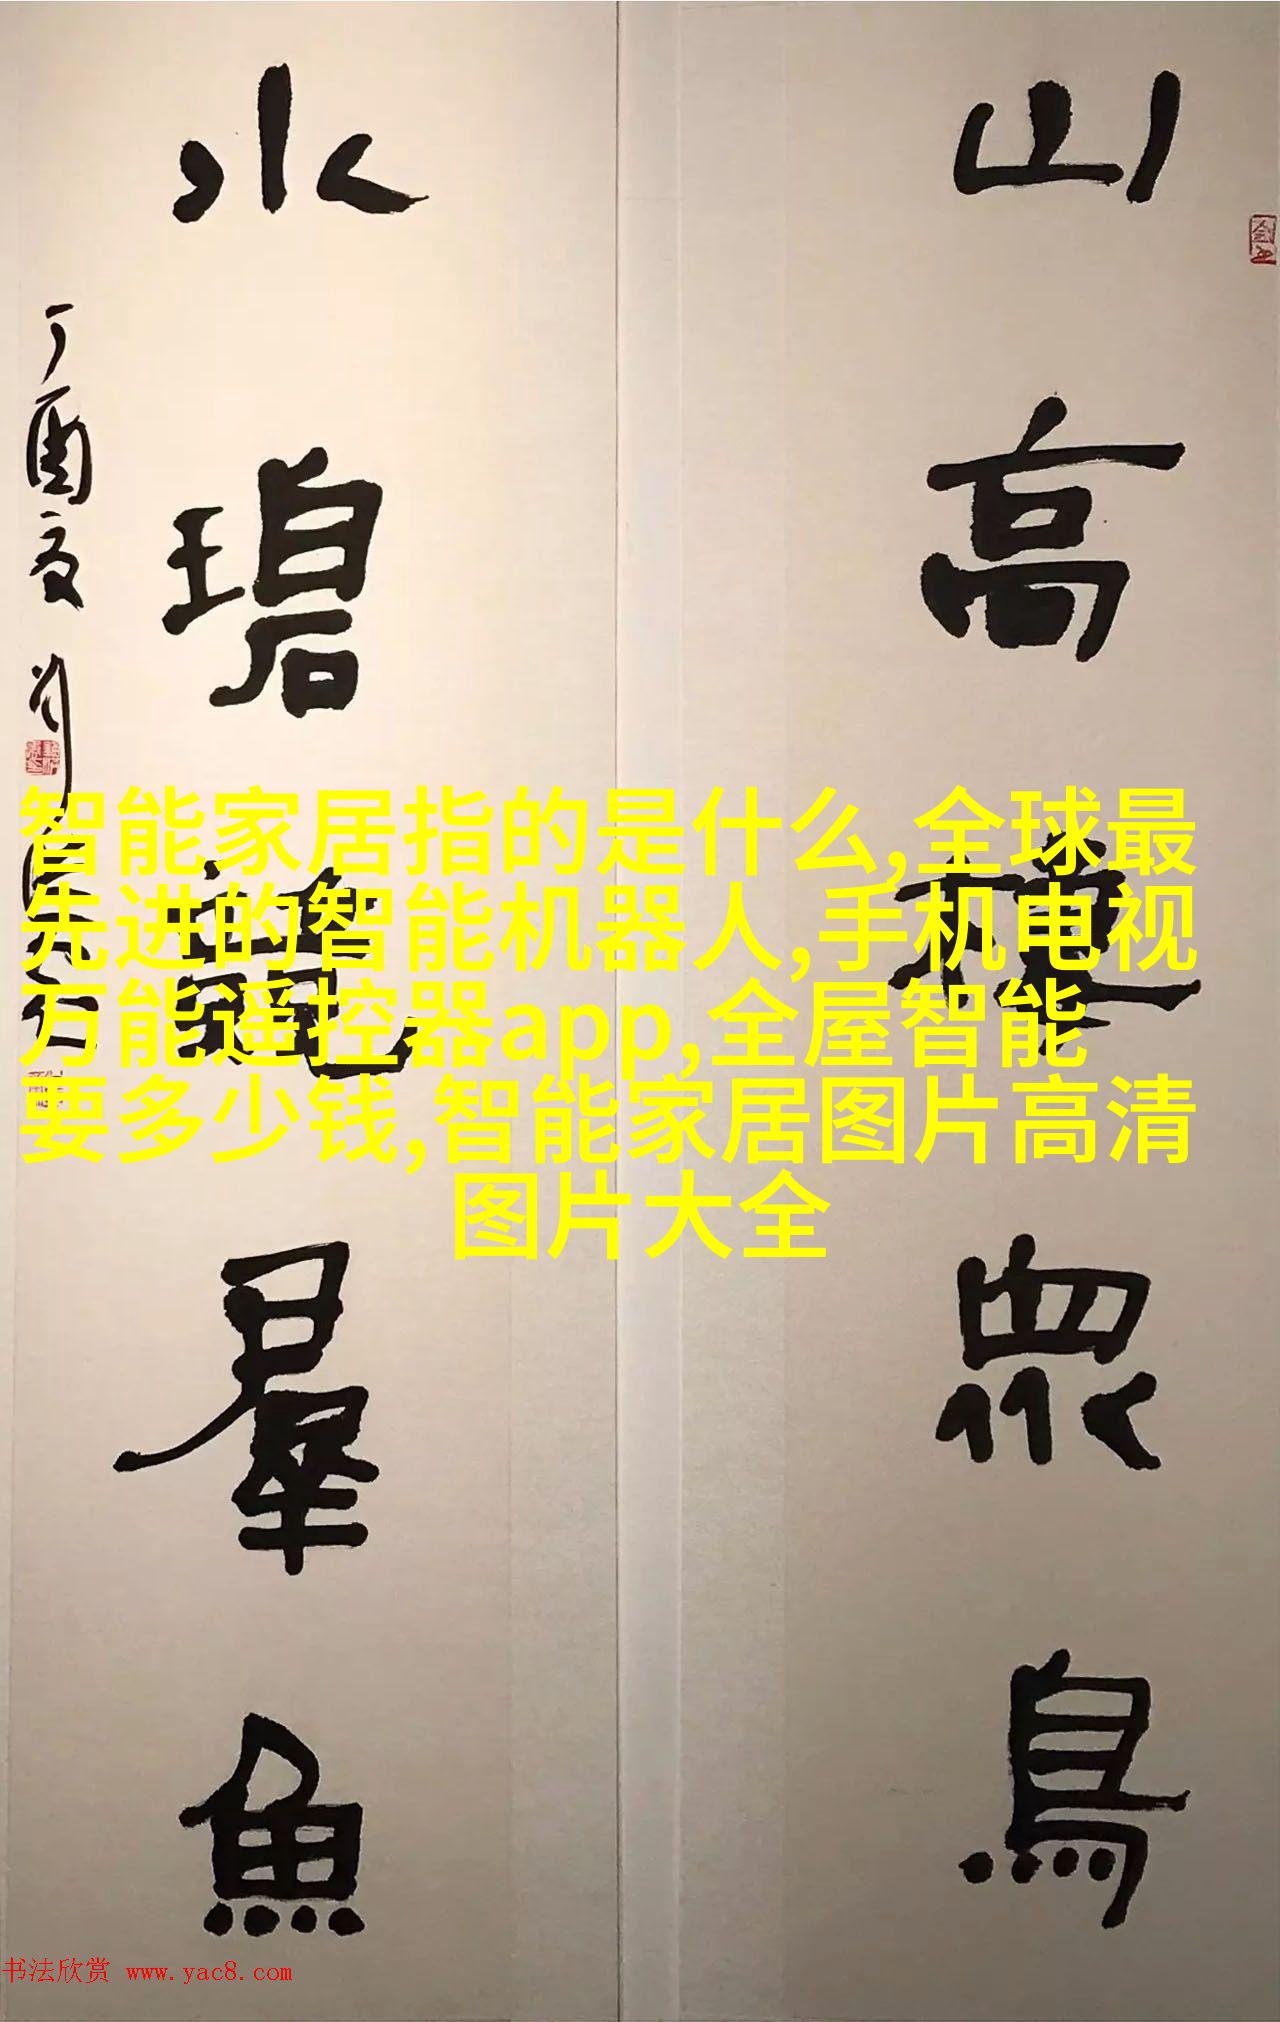 山高棲眾鳥
水碧羣魚
丁酉夏
智能家居指的是什么,全球最
先进的智能机器人,手机电视
万能遥控器app,全屋智能
要多少钱,智能家居图片高清
图片大全
书法欣赏 www.yac8.com